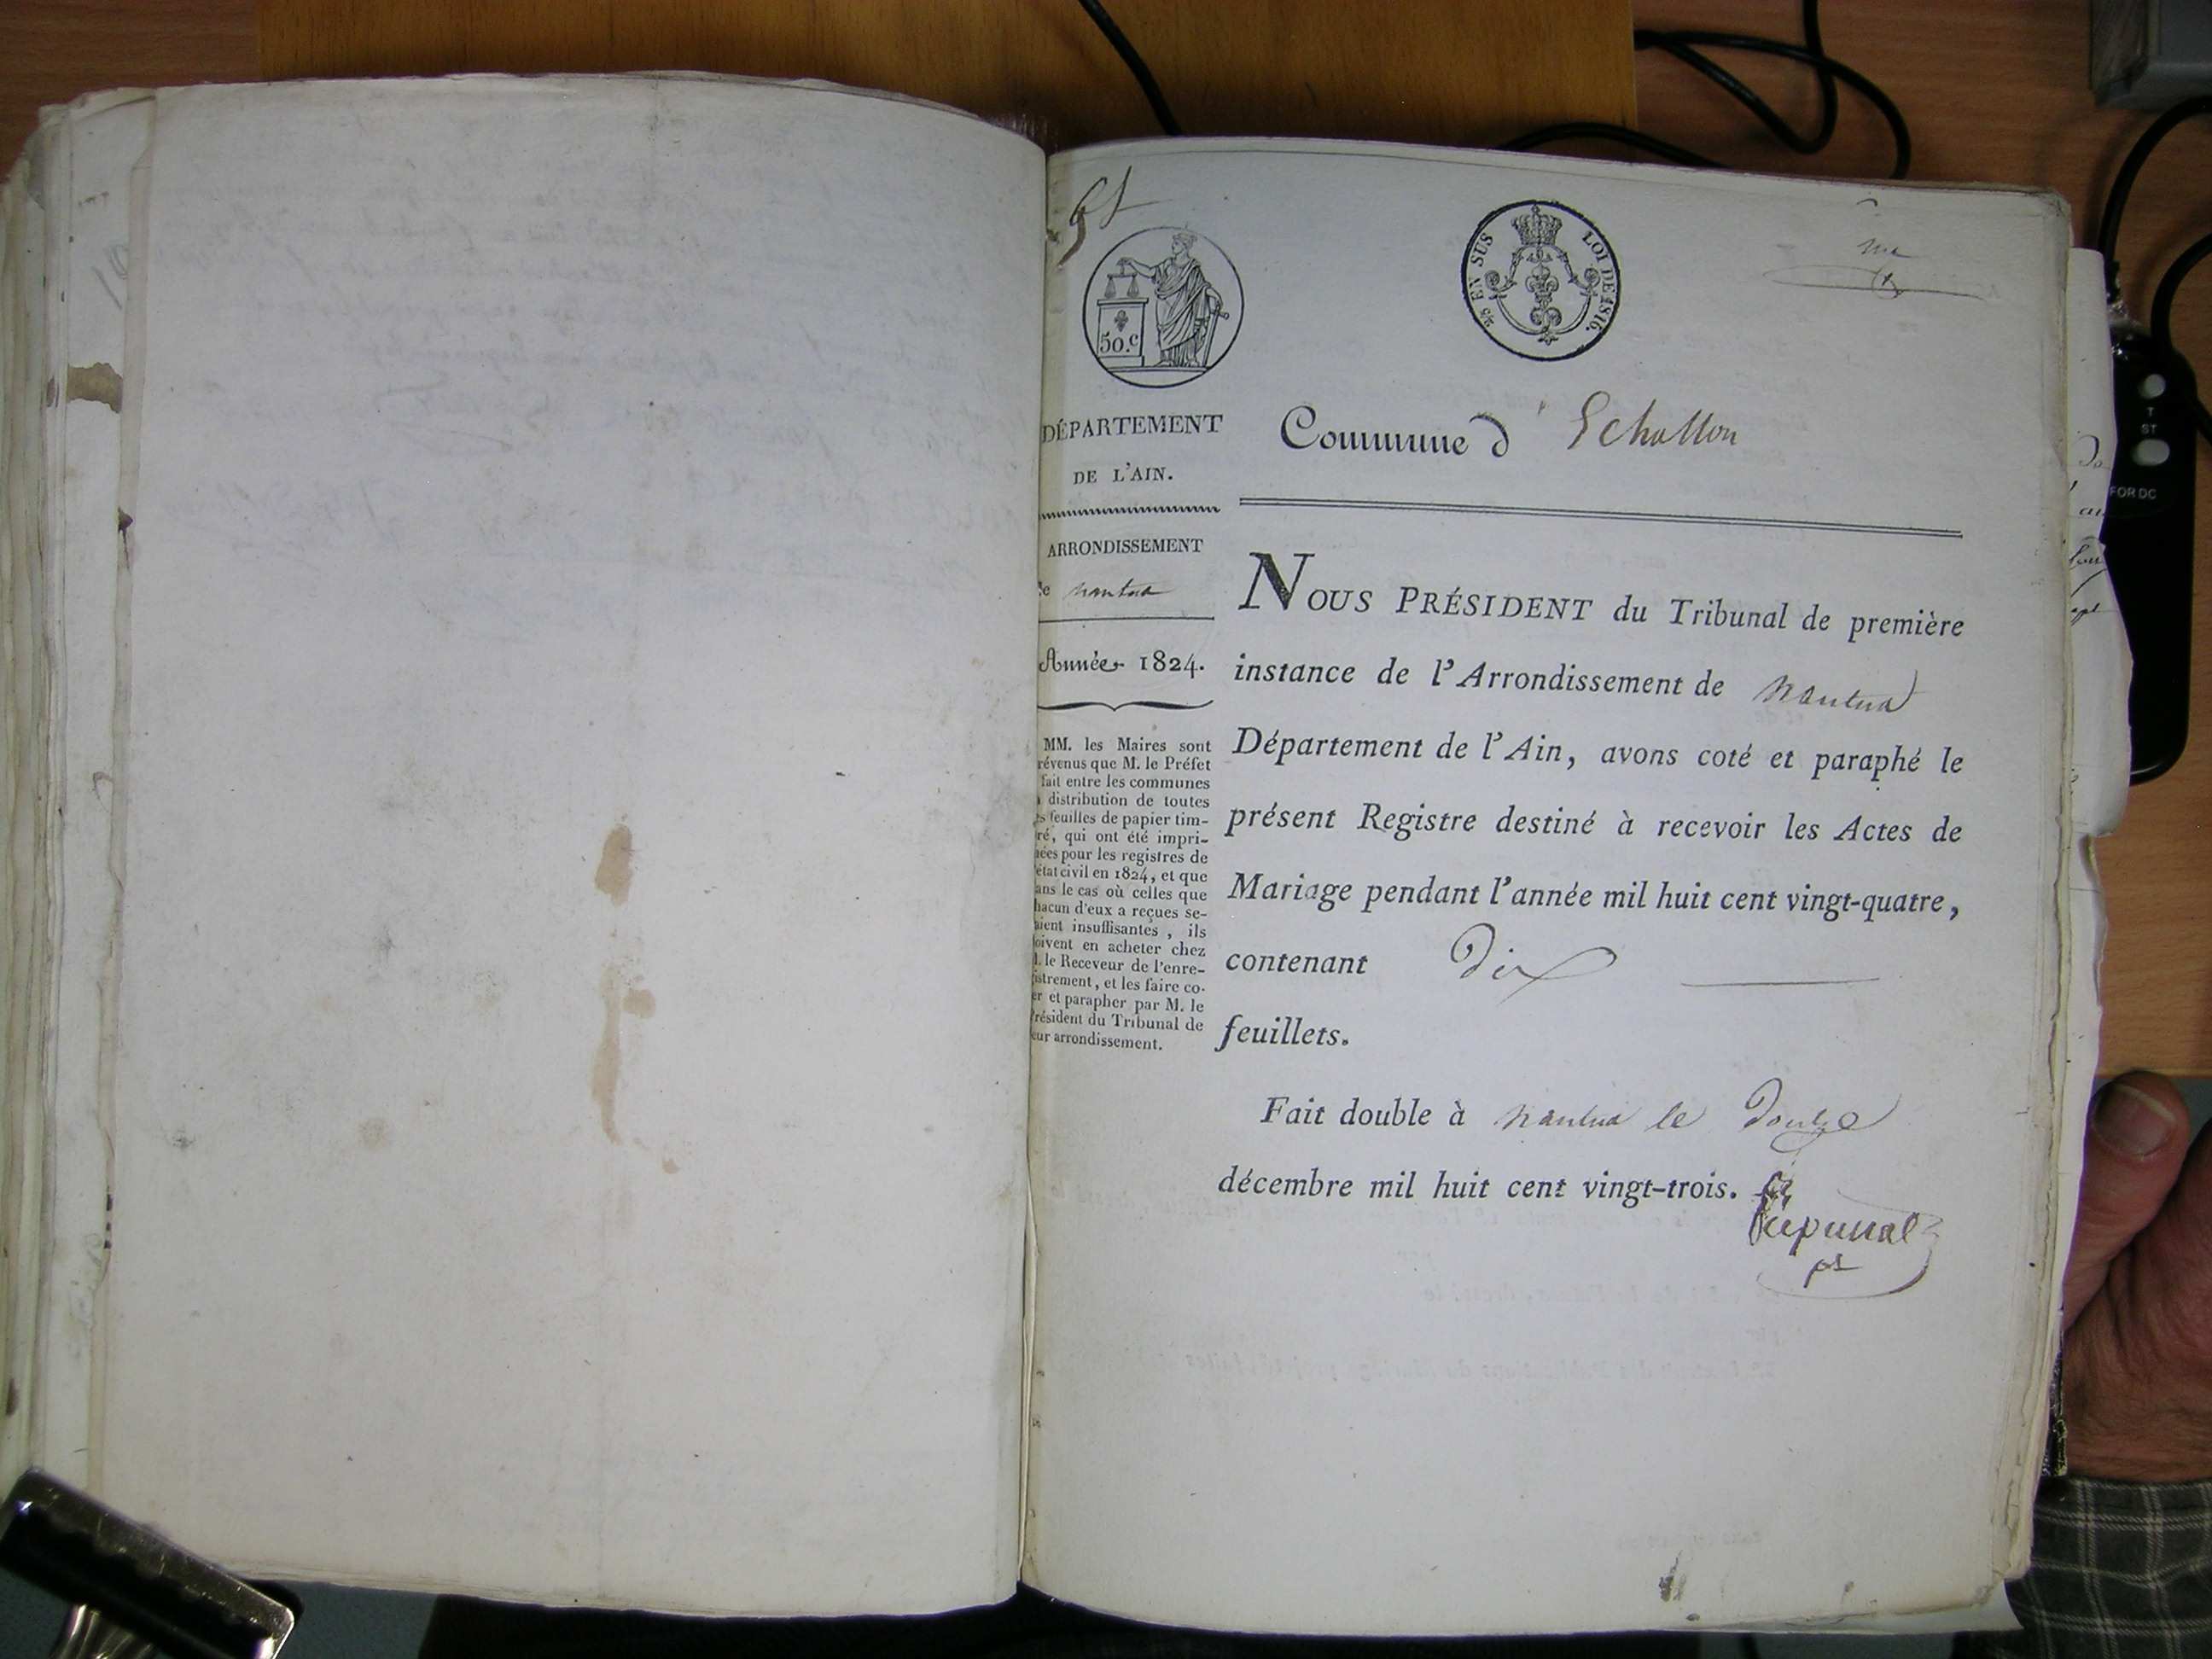 50.c
25 EN SUS LOI DE 1816.
DÉPARTEMENT
DE L'AIN.
ARRONDISSEMENT
de nantua
Année 1824.
MM. les Maires sont
révenus que M. le Préfet
fait entre les communes
a distribution de toutes
es feuilles de papier tim-
ré, qui ont été impri-
ées pour les registres de
état civil en 1824, et que
ans le cas où celles que
hacun d'eux a reçues se-
aient insuffisantes, ils
oivent en acheter chez
. le Receveur de l'enre-
istrement, et les faire co-
er et parapher par M. le
résident du Tribunal de
eur arrondissement.
Commune d' Echallon
NOUS PRÉSIDENT du Tribunal de première
instance de l'Arrondissement de nantua
Département de l'Ain, avons coté et paraphé le
présent Registre destiné à recevoir les Actes de
Mariage pendant l'année mil huit cent vingt-quatre,
contenant Dix
feuillets.
Fait double à nantua le Douze
décembre mil huit cent vingt-trois.
T
ST
FOR DC